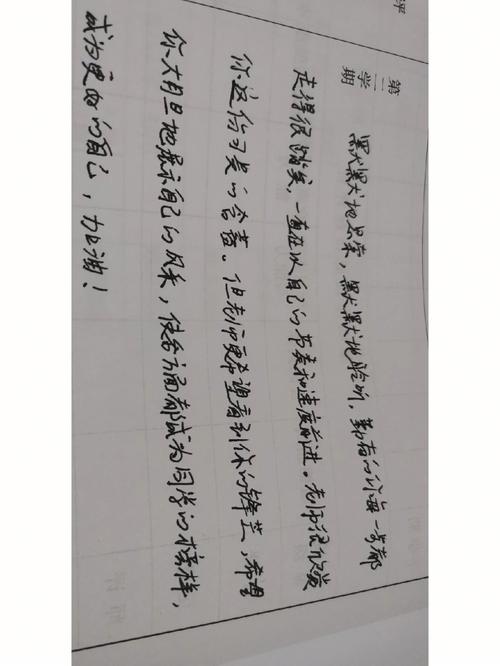 评
第二学期
默默地思索,默默地聆听,勤奋的你每一步都
走得很踏实,一直在以自己的节奏和速度前进。老师很欣赏
你这份可贵的含蓄。但老师更希望看到你的锋芒,希望
你大胆地展示自己的风采,使各方面都成为同学的榜样,
成为更好的自己,加油!